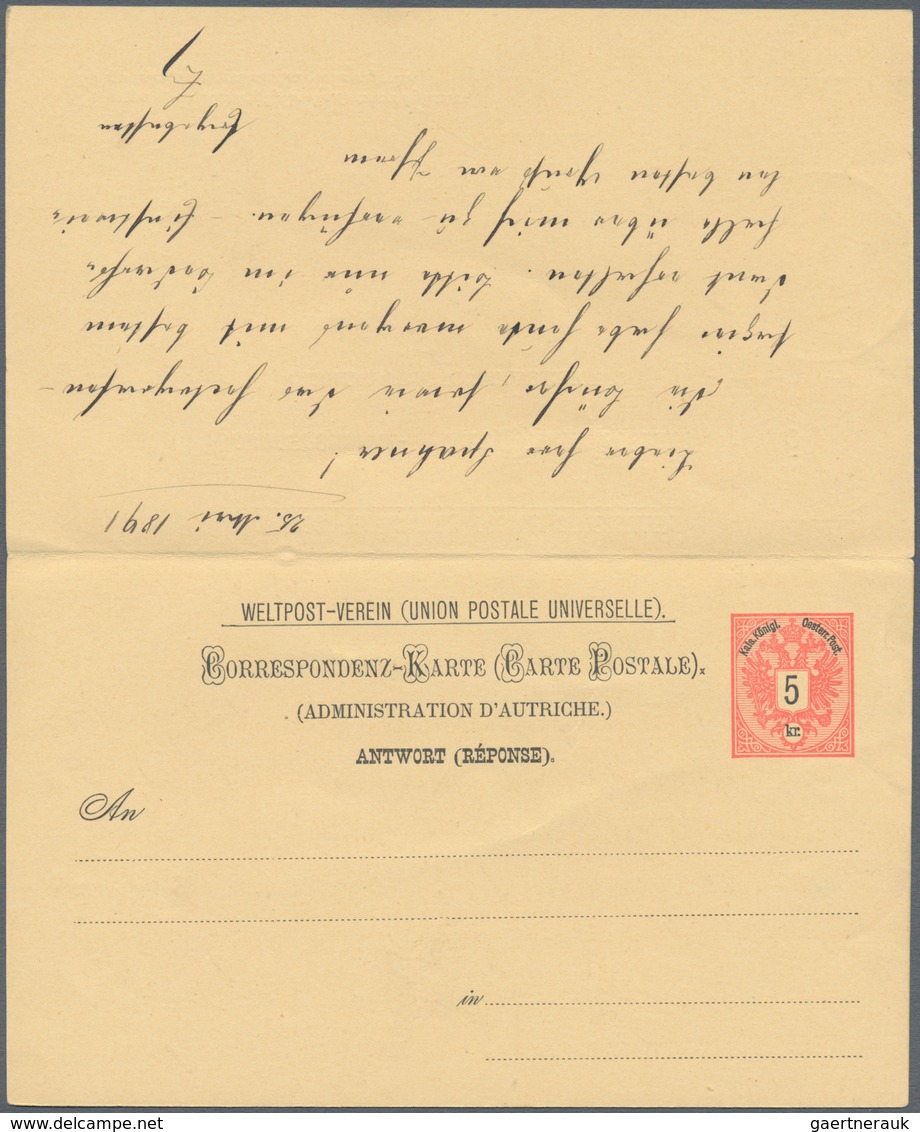 25. Mai 1891
Lieber Herr Spahner!
Die Bücher, sowie das
habe heute morgens mit bestem
Dank erhalten. Bitte nur im
falle über mich zu verfügen. –
den besten Gruß von Ihrem
WELTPOST-VEREIN (UNION POSTALE UNIVERSELLE).
CORRESPONDENZ-KARTE (CARTE POSTALE).
(ADMINISTRATION D'AUTRICHE.)
ANTWORT (RÉPONSE).
Kais. Königl. Oesterr. Post.
5
kr.
An
in
DELCAMPE.NET
gaertnerauk